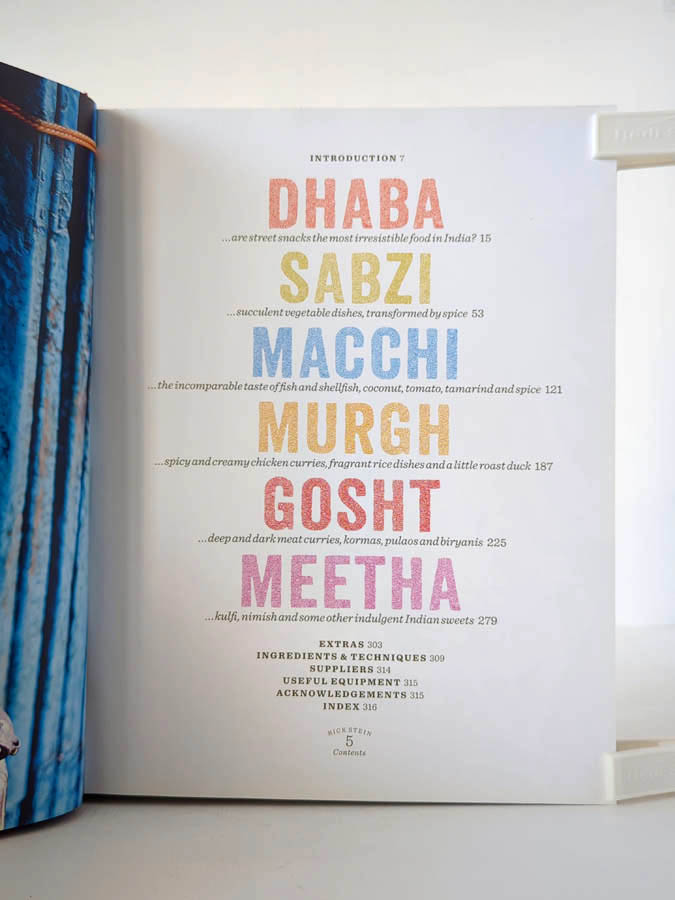 INTRODUCTION 7
DHABA
...are street snacks the most irresistible food in India? 15
SABZI
...succulent vegetable dishes, transformed by spice 53
MACCHI
...the incomparable taste of fish and shellfish, coconut, tomato, tamarind and spice 121
MURGH
...spicy and creamy chicken curries, fragrant rice dishes and a little roast duck 187
GOSHT
...deep and dark meat curries, kormas, pulaos and biryanis 225
MEETHA
...kulfi, nimish and some other indulgent Indian sweets 279
EXTRAS 303
INGREDIENTS & TECHNIQUES 309
SUPPLIERS 314
USEFUL EQUIPMENT 315
ACKNOWLEDGEMENTS 315
INDEX 316
RICK STEIN
5
Contents